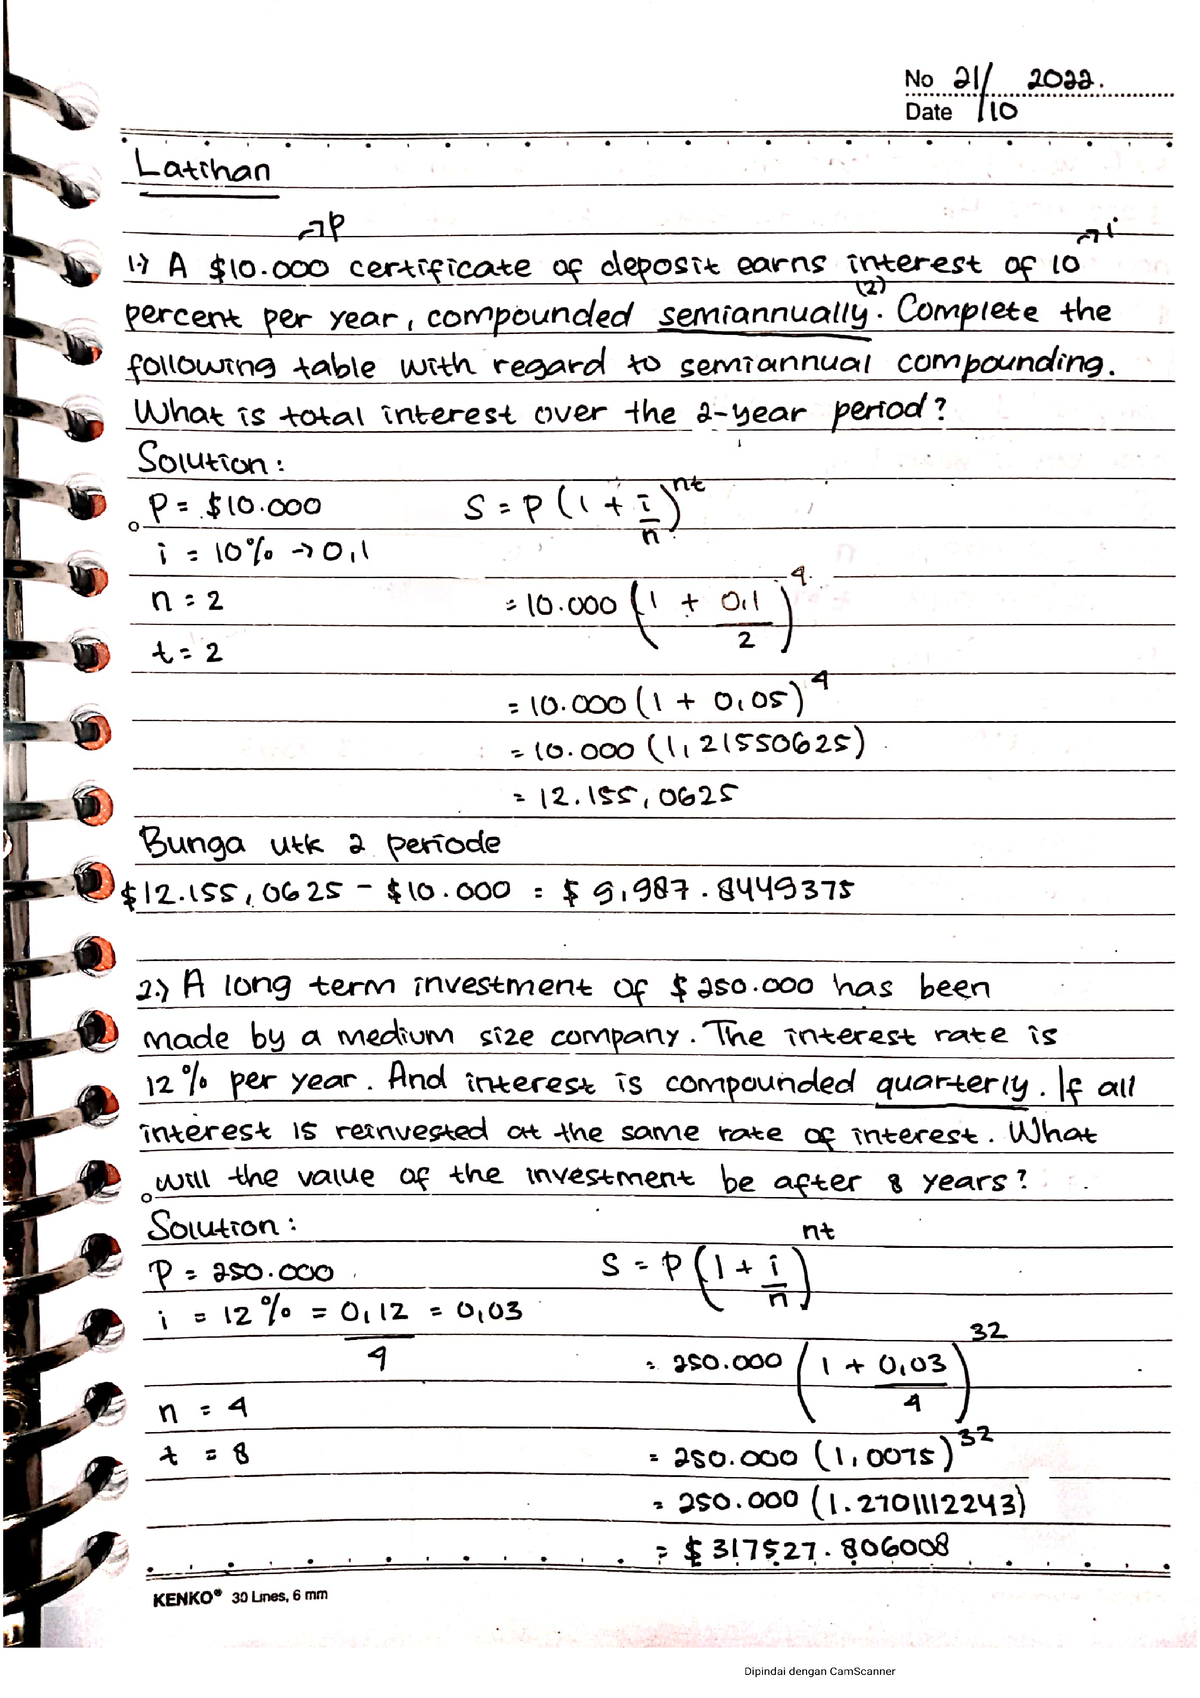 No 21/ 2022.
Date /10
Latihan
→P
→i
1.) A $10.000 certificate of deposit earns interest of 10
(2)
percent per year, compounded semiannually. Complete the
following table with regard to semiannual compounding.
What is total interest over the 2-year period?
Solution:
P = $10.000 S = P (1 + i/n)^nt
i = 10% → 0,1
n = 2 = 10.000 (1 + 0,1/2)^4
t = 2
= 10.000 (1 + 0,05)^4
= 10.000 (1,21550625)
= 12.155,0625
Bunga utk 2 periode
$12.155,0625 - $10.000 = $ 9,987.8449375
2.) A long term investment of $250.000 has been
made by a medium size company. The interest rate is
12% per year. And interest is compounded quarterly. If all
interest is reinvested at the same rate of interest. What
will the value of the investment be after 8 years?
Solution:
P = 250.000 S = P (1 + i/n)^nt
i = 12% = 0,12/4 = 0,03
= 250.000 (1 + 0,03/4)^32
n = 4
t = 8 = 250.000 (1,0075)^32
= 250.000 (1.2701112243)
= $317527.806008
KENKO® 30 Lines, 6 mm
Dipindai dengan CamScanner